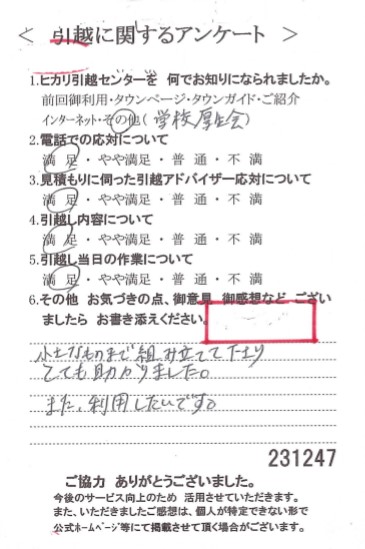 ＜ 引越に関するアンケート ＞
1.ヒカリ引越センターを 何でお知りになられましたか。
前回御利用・タウンページ・タウンガイド・ご紹介
インターネット・その他(学校厚生会)
2.電話での応対について
満 足・やや満足・普 通・不 満
3.見積もりに伺った引越アドバイザー応対について
満 足・やや満足・普 通・不 満
4.引越し内容について
満 足・やや満足・普 通・不 満
5.引越し当日の作業について
満 足・やや満足・普 通・不 満
6.その他 お気づきの点、御意見 御感想など ござい
ましたら お書き添えください。
なものまで組み立てて下さり
とても助かりました。
また、利用したいです。
231247
ご協力 ありがとうございました。
今後のサービス向上のため 活用させていただきます。
また、いただきましたご感想は、個人が特定できない形で
公式ホームページ等にて掲載させて頂く場合がございます。